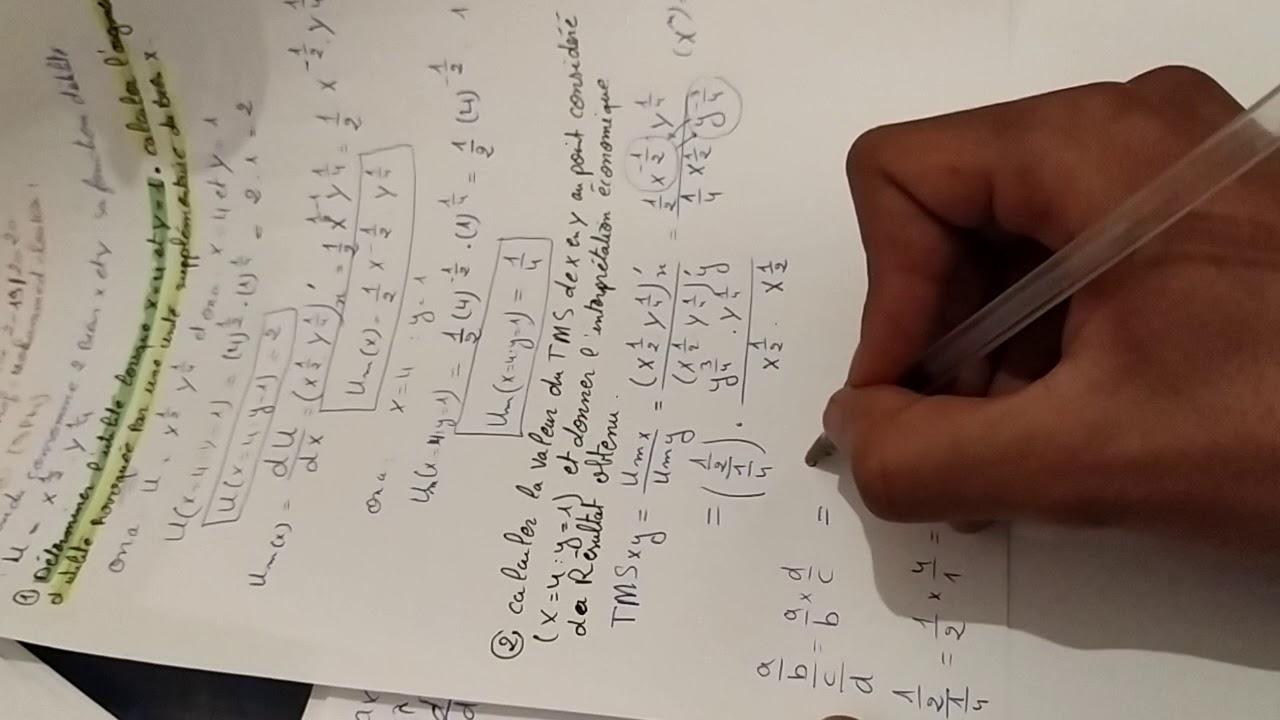 U = x^{1/2} y^{1/4} consomme 2 biens x et y sa fonction d'utilité
① Déterminer l'utilité lorsque x=4 et y=1. calculer l'
d'utilité Provoquée par une unité supplémentaire du bien x
on a
U = x^{1/2} y^{1/4} donc x=4 et y=1
U(x=4; y=1) = (4)^{1/2} · (1)^{1/4} = 2 · 1 = 2
U(x=4; y=1) = 2
Um(x) = dU/dx = (x^{1/2} y^{1/4})'x = 1/2 x^{1/2-1} y^{1/4} = 1/2 x^{-1/2} · y^{1/4}
Um(x) = 1/2 x^{-1/2} · y^{1/4}
on a x=4 ; y=1
Um(x=4; y=1) = 1/2 (4)^{-1/2} · (1)^{1/4} = 1/2 (4)^{-1/2} 1
Um(x=4; y=1) = 1/4
② calculer la valeur du TMS de x en y au point considéré
(x=4; y=1) et donner l'interprétation économique
de Résultat obtenu.
TMSxy = Umx/Umy = (x^{1/2} y^{1/4})'x / (x^{1/2} y^{1/4})'y = 1/2 x^{-1/2} y^{1/4} / 1/4 x^{1/2} y^{-3/4}
= (1/2 / 1/4) · y^{3/4} · y^{1/4} / x^{1/2} · x^{1/2}
a/b / c/d = a/b × d/c =
1/2 / 1/4 = 1/2 × 4/1 =